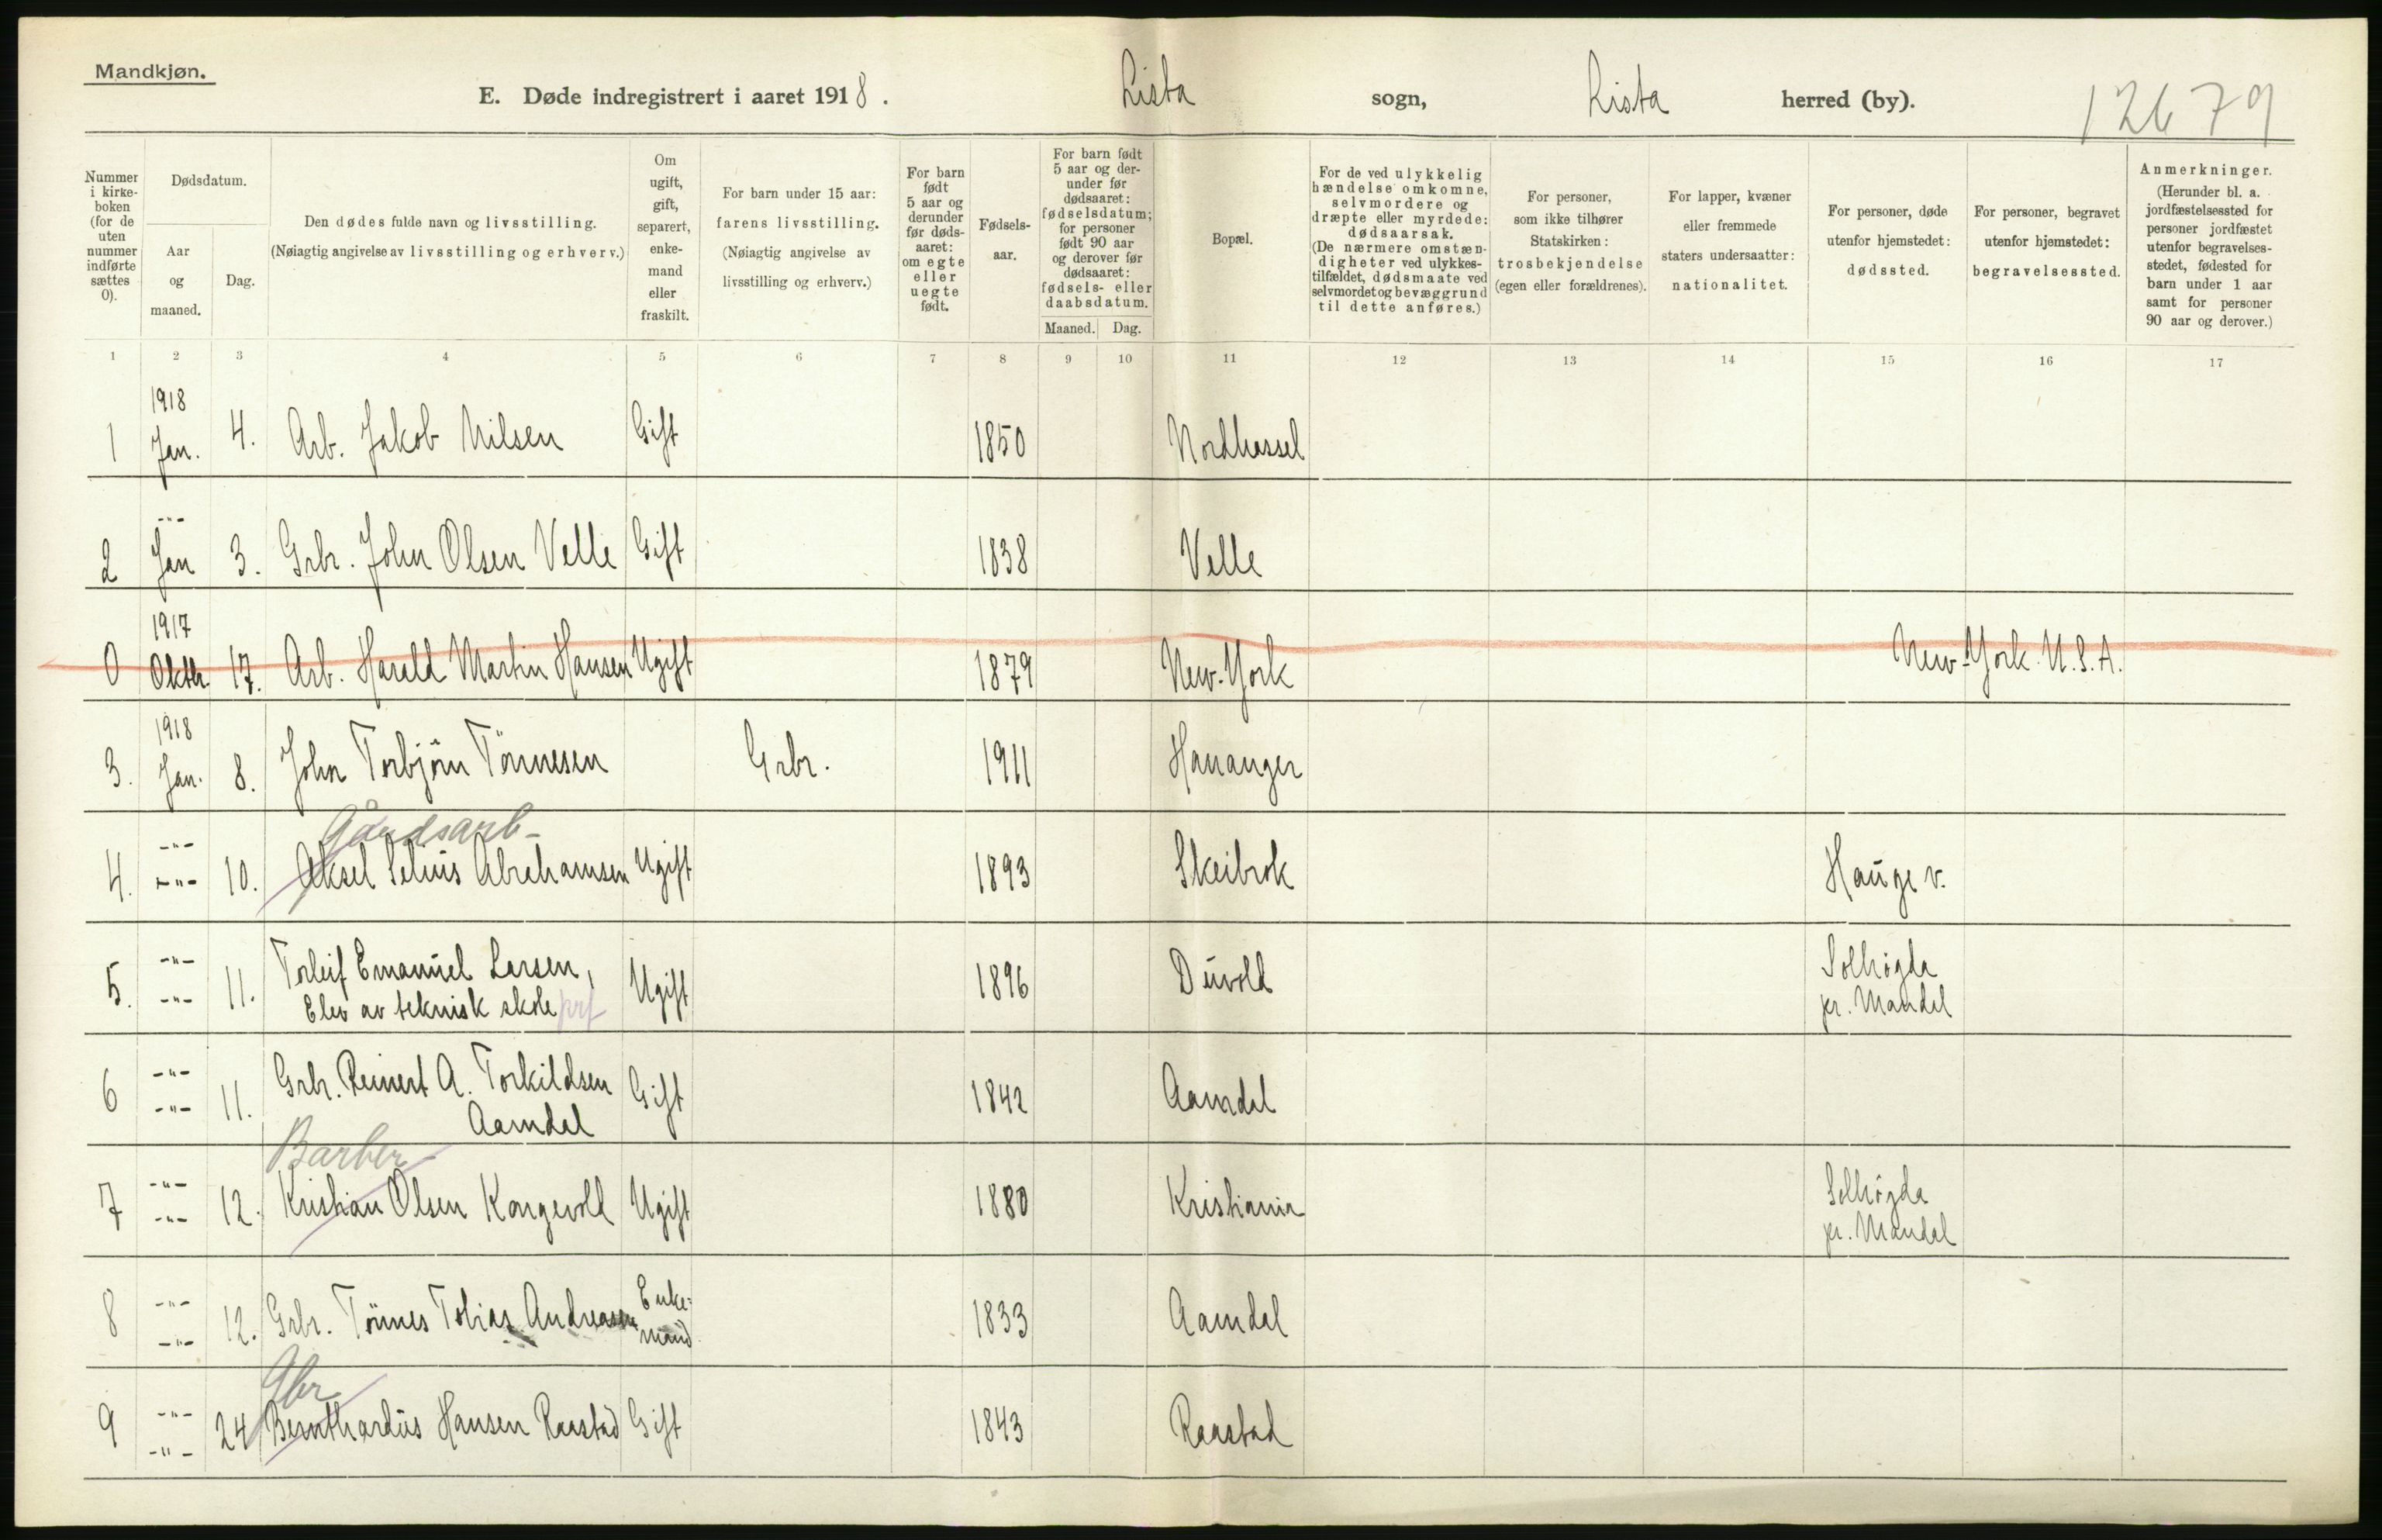 Mandkjøn.
E. Døde indregistrert i aaret 1918. Lista sogn, Lista herred (by). 12679
Nummer i kirke-boken (for de uten nummer indførte sættes 0).
Dødsdatum.
Aar og maaned.
Dag.
Den dødes fulde navn og livsstilling.
(Nøiagtig angivelse av livsstilling og erhverv.)
Om ugift, gift, separert, enke-mand eller fraskilt.
For barn under 15 aar: farens livsstilling. (Nøiagtig angivelse av livsstilling og erhverv.)
For barn født 5 aar og derunder før døds-aaret: om egte eller uegte født.
Fødsels-aar.
For barn født 5 aar og der-under før dødsaaret: fødselsdatum; for personer født 90 aar og derover før dødsaaret: fødsels- eller daabsdatum.
Maaned. Dag.
Bopæl.
For de ved ulykkelig hændelse omkomne, selvmordere og dræpte eller myrdede: dødsaarsak. (De nærmere omstæn-digheter ved ulykkes-tilfældet, dødsmaate ved selvmordet og bevæggrund til dette anføres.)
For personer, som ikke tilhører Statskirken: trosbekjendelse (egen eller forældrenes).
For lapper, kvæner eller fremmede staters undersaatter: nationalitet.
For personer, døde utenfor hjemstedet: dødssted.
For personer, begravet utenfor hjemstedet: begravelsessted.
Anmerkninger. (Herunder bl. a. jordfæstelsessted for personer jordfæstet utenfor begravelses-stedet, fødested for barn under 1 aar samt for personer 90 aar og derover.)
1 2 3 4 5 6 7 8 9 10 11 12 13 14 15 16 17
1918
1 Jan. 4. Arb. Jakob Nilsen Gift 1850 Nordhassel
-"-
2 Jan 3. Grbr. John Olsen Velle Gift 1838 Velle
1917
0 Oktbr. 17. Arb. Harald Martin Hansen Ugift 1879 New-York New-York U.S.A.
1918
3. Jan. 8. John Torbjörn Tönnesen Grbr. 1911 Hananger
Gårdsarb-
-"-
4. -"- 10. Aksel Selius Abrahamsen Ugift 1893 Skeibrok Hauge v.
-"- Torleif Emanuel Larsen, Solhögda
5. -"- 11. Elev av teknisk skole Ugift 1896 Duvold pr. Mandal
-"- Grbr. Reinert A. Torkildsen
6 -"- 11. Aamdal Gift 1842 Aamdal
Barber
-"- Solhögda
7 -"- 12. Kristian Olsen Kongevold Ugift 1880 Kristiania pr. Mandal
-"- Enke-
8 -"- 12. Grbr. Tönnes Tobias Andreasen mand 1833 Aamdal
Gbr
-"-
9 -"- 24 Bernthardus Hansen Raastad Gift 1843 Raastad